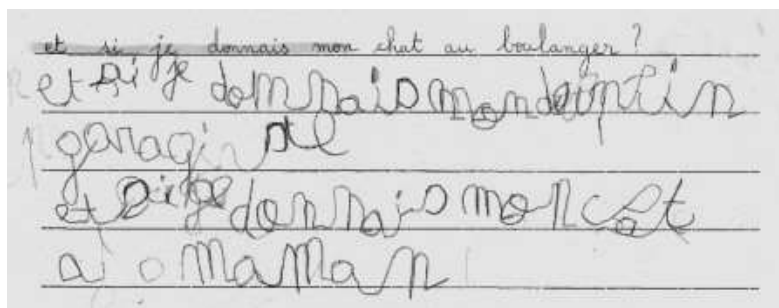 et si je donnais mon chat au boulanger ?
et si je domnais mon
garagiste
et si je donnais mon cat
a maman